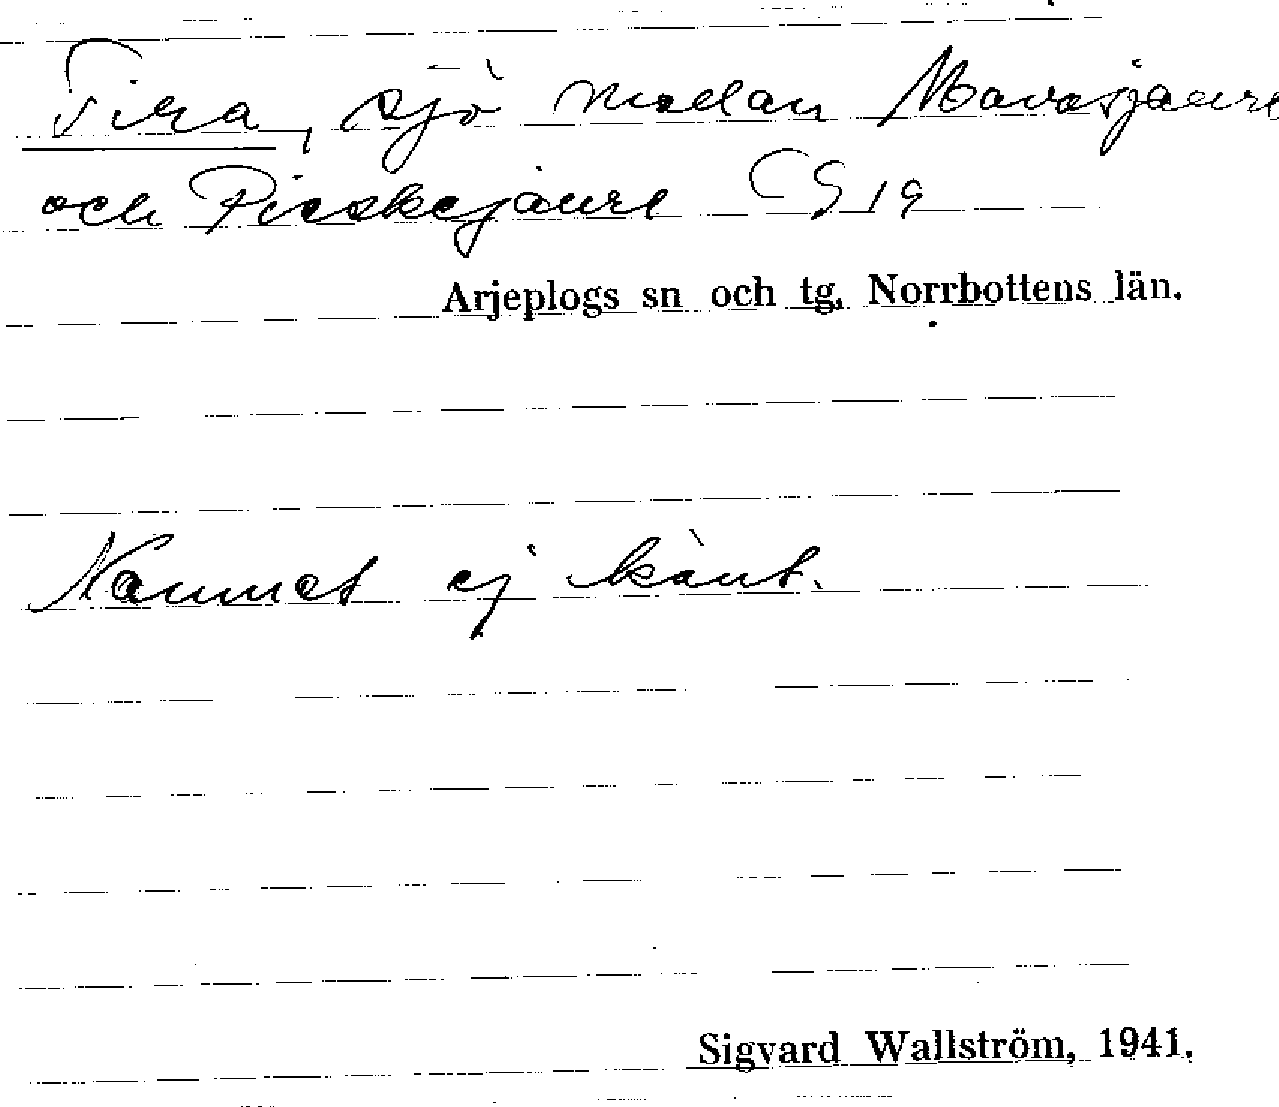 Tira, sjö mellan Mavasjaure
och Pieskejaure CG 19
Arjeplogs sn och tg, Norrbottens län.
Namnet ej känt.
Sigvard Wallström, 1941.